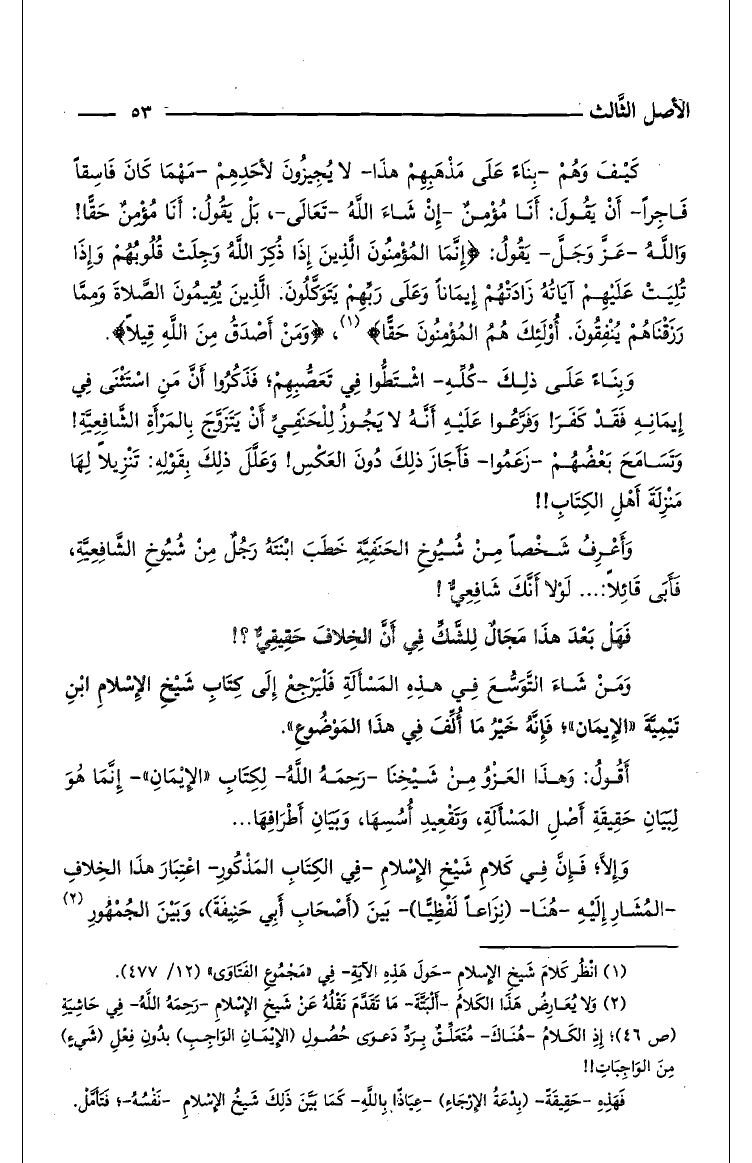 الأصل الثَّالث ٥٣
كَيْفَ وَهُمْ –بِنَاءً عَلَى مَذْهَبِهِمْ هذَا– لا يُجِيزُونَ لأحَدِهِمْ –مَهْمَا كَانَ فَاسِقاً
فَاجِراً– أَنْ يَقُولَ: أَنَا مُؤْمِنٌ –إِنْ شَاءَ اللَّهُ –تَعَالَى–، بَلْ يَقُولُ: أَنَا مُؤْمِنٌ حَقًّا!
وَاللَّهُ –عَزَّ وَجَلَّ– يَقُولُ: ﴿إِنَّمَا المُؤْمِنُونَ الَّذِينَ إِذَا ذُكِرَ اللَّهُ وَجِلَتْ قُلُوبُهُمْ وَإِذَا
تُلِيَتْ عَلَيْهِمْ آيَاتُهُ زَادَتْهُمْ إِيمَاناً وَعَلَى رَبِّهِمْ يَتَوَكَّلُونَ. الَّذِينَ يُقِيمُونَ الصَّلاةَ وَمِمَّا
رَزَقْنَاهُمْ يُنْفِقُونَ. أُوْلَئِكَ هُمُ المُؤْمِنُونَ حَقًّا﴾ (١)، ﴿وَمَنْ أَصْدَقُ مِنَ اللَّهِ قِيلاً﴾.
وَبِنَاءً عَلَى ذلِكَ –كُلِّهِ– اشْتَطُّوا فِي تَعَصُّبِهِمْ؛ فَذَكَرُوا أَنَّ مَنِ اسْتَثْنَى فِي
إِيمَانِهِ فَقَدْ كَفَرَ! وَفَرَّعُوا عَلَيْهِ أَنَّهُ لا يَجُوزُ لِلْحَنَفِيِّ أَنْ يَتَزَوَّجَ بِالمَرْأَةِ الشَّافِعِيَّةِ!
وَتَسَامَحَ بَعْضُهُمْ –زَعَمُوا– فَأَجَازَ ذلِكَ دُونَ العَكْسِ! وَعَلَّلَ ذلِكَ بِقَوْلِهِ: تَنْزِيلاً لِهَا
مَنْزِلَةَ أَهْلِ الكِتَابِ!!
وَأَعْرِفُ شَخْصاً مِنْ شُيُوخِ الحَنَفِيَّةِ خَطَبَ ابْنَتَهُ رَجُلٌ مِنْ شُيُوخِ الشَّافِعِيَّةِ،
فَأَبَى قَائِلاً:... لَوْلا أَنَّكَ شَافِعِيٌّ !
فَهَلْ بَعْدَ هذَا مَجَالٌ لِلشَّكِّ فِي أَنَّ الخِلافَ حَقِيقِيٌّ ؟!
وَمَنْ شَاءَ التَّوَسُّعَ فِي هذِهِ المَسْأَلَةِ فَلْيَرْجِعْ إِلَى كِتَابِ شَيْخِ الإِسْلامِ ابْنِ
تَيْمِيَّةَ «الإِيمَان»؛ فَإِنَّهُ خَيْرُ مَا أُلِّفَ فِي هذَا المَوْضُوعِ».
أَقُولُ: وَهذَا العَزْوُ مِنْ شَيْخِنَا –رَحِمَهُ اللَّهُ– لِكِتَابِ «الإِيْمَانِ»– إِنَّمَا هُوَ
لِبَيَانِ حَقِيقَةِ أَصْلِ المَسْأَلَةِ، وَتَقْعِيدِ أُسُسِهَا، وَبَيَانِ أَطْرَافِهَا...
وَإِلاَّ؛ فَإِنَّ فِي كَلامِ شَيْخِ الإِسْلامِ –فِي الكِتَابِ المَذْكُورِ– اعْتِبَارَ هذَا الخِلافِ
–المُشَارِ إِلَيْهِ –هُنَا– (نِزَاعاً لَفْظِيًّا)– بَيْنَ (أَصْحَابِ أَبِي حَنِيفَةَ)، وَبَيْنَ الجُمْهُورِ (٢)
(١) انْظُر كَلامَ شَيخِ الإِسلامِ –حَولَ هَذِهِ الآيَةِ– فِي «مَجْمُوعِ الفَتَاوَى» (١٢/ ٤٧٧).
(٢) وَلا يُعَارِضُ هَذَا الكَلامُ –أَلْبَتَّةَ– مَا تَقَدَّمَ نَقْلُهُ عَنْ شَيخِ الإِسْلامِ –رَحِمَهُ اللَّهُ– فِي حَاشِيَةِ
(ص ٤٦)؛ إِذِ الكَلامُ –هُنَاكَ– مُتَعَلِّقٌ بِرَدِّ دَعوَى حُصُولِ (الإِيْمَانِ الوَاجِبِ) بدُونِ فِعْلِ (شَيءٍ)
مِنَ الوَاجِبَاتِ!!
فَهَذِهِ –حَقِيقَةً– (بِدْعَةُ الإِرْجَاءِ) –عِيَاذًا بِاللَّهِ– كَمَا بَيَّنَ ذَلِكَ شَيخُ الإِسْلامِ –نَفْسُهُ–؛ فَتَأَمَّلْ.